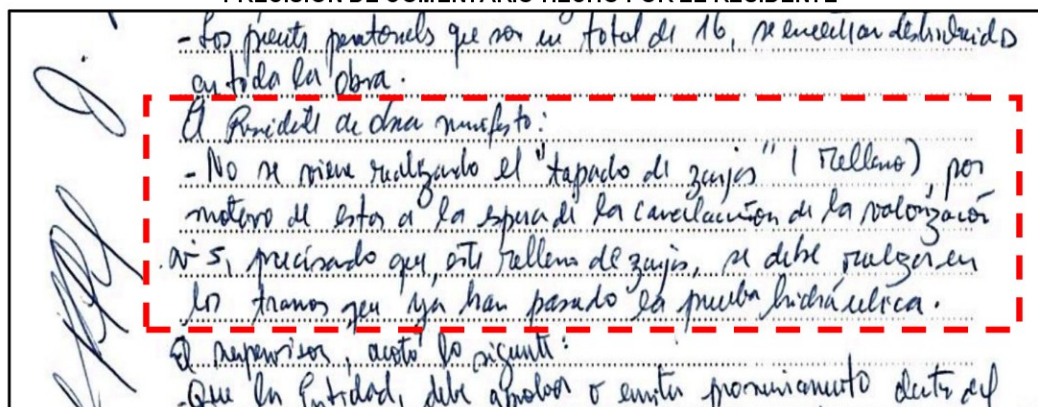 PRECISIÓN DE COMENTARIO HECHO POR EL RESIDENTE
- Los puents peatonels que son en total de 16, se encuentran distribuidos
en toda la obra.
El Residente de obra manifesto:
- No se viene realizando el "tapado de zanjas" (relleno), por
motivo de estar a la espera de la cancelación de la valorización
N° 5, precisando que, este relleno de zanjas, se debe realizar en
los tramos que ya han pasado la prueba hidráulica.
El supervisor, acotó lo siguiente:
- Que la Entidad, debe aprobar o emitir pronunciamiento dentro del